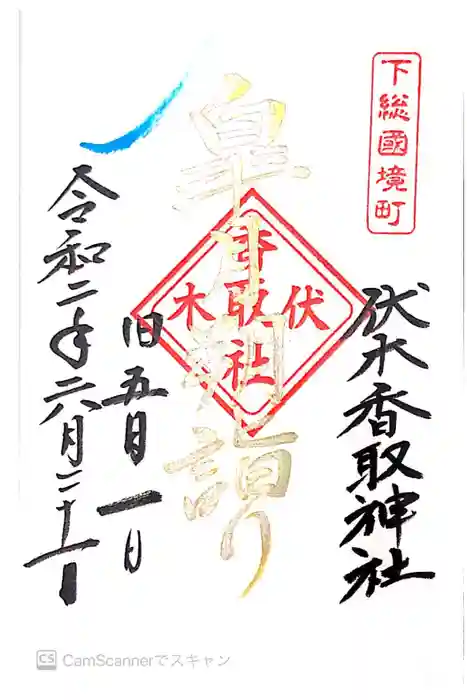 下総國境町
伏木香取神社
皐月朔詣り
伏
香取社
木
旧五月一日
令和二年六月二十一日
CamScannerでスキャン